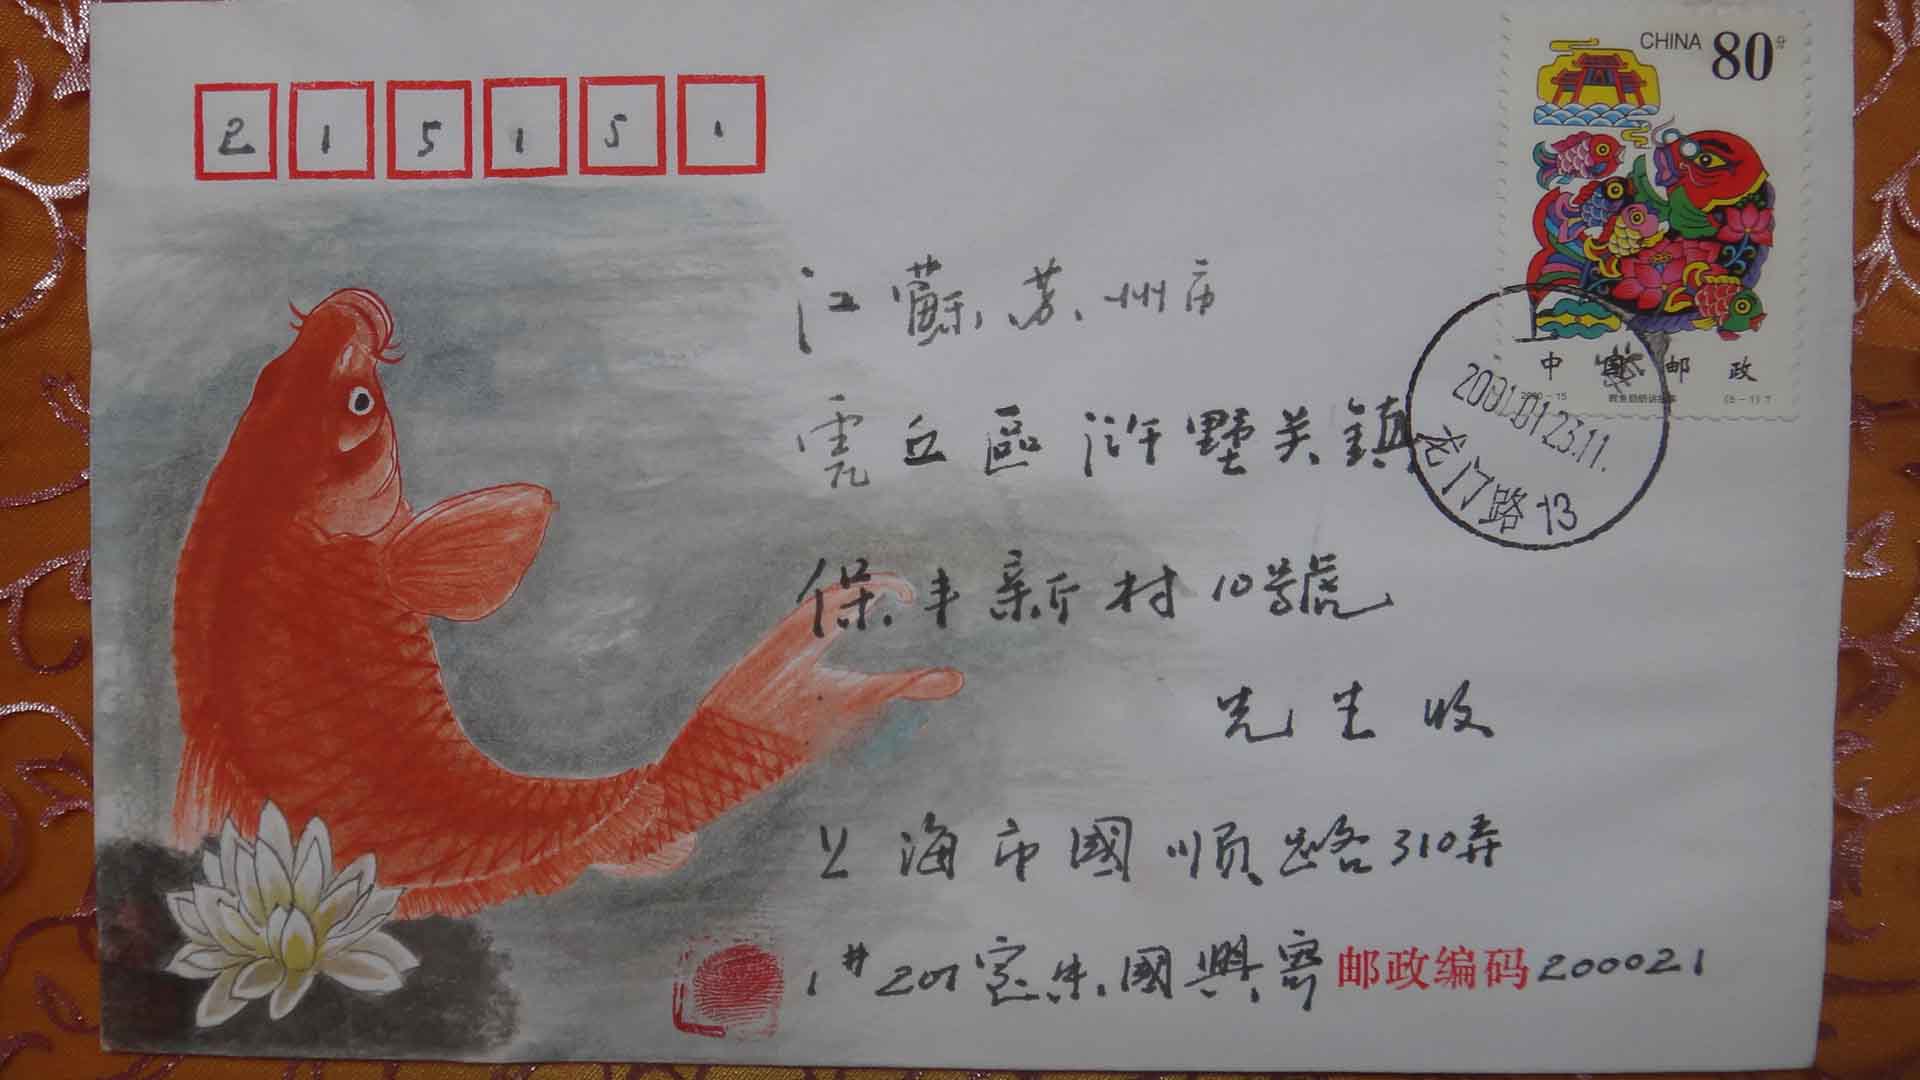 215151
CHINA 80分
中国邮政
2001.01.23.11.
龙门路 13
江蘇苏州市
丘區浒墅关鎮
保丰新村10號
先生收
上海市國順路310弄
1# 201室朱國興寄 邮政编码 200021